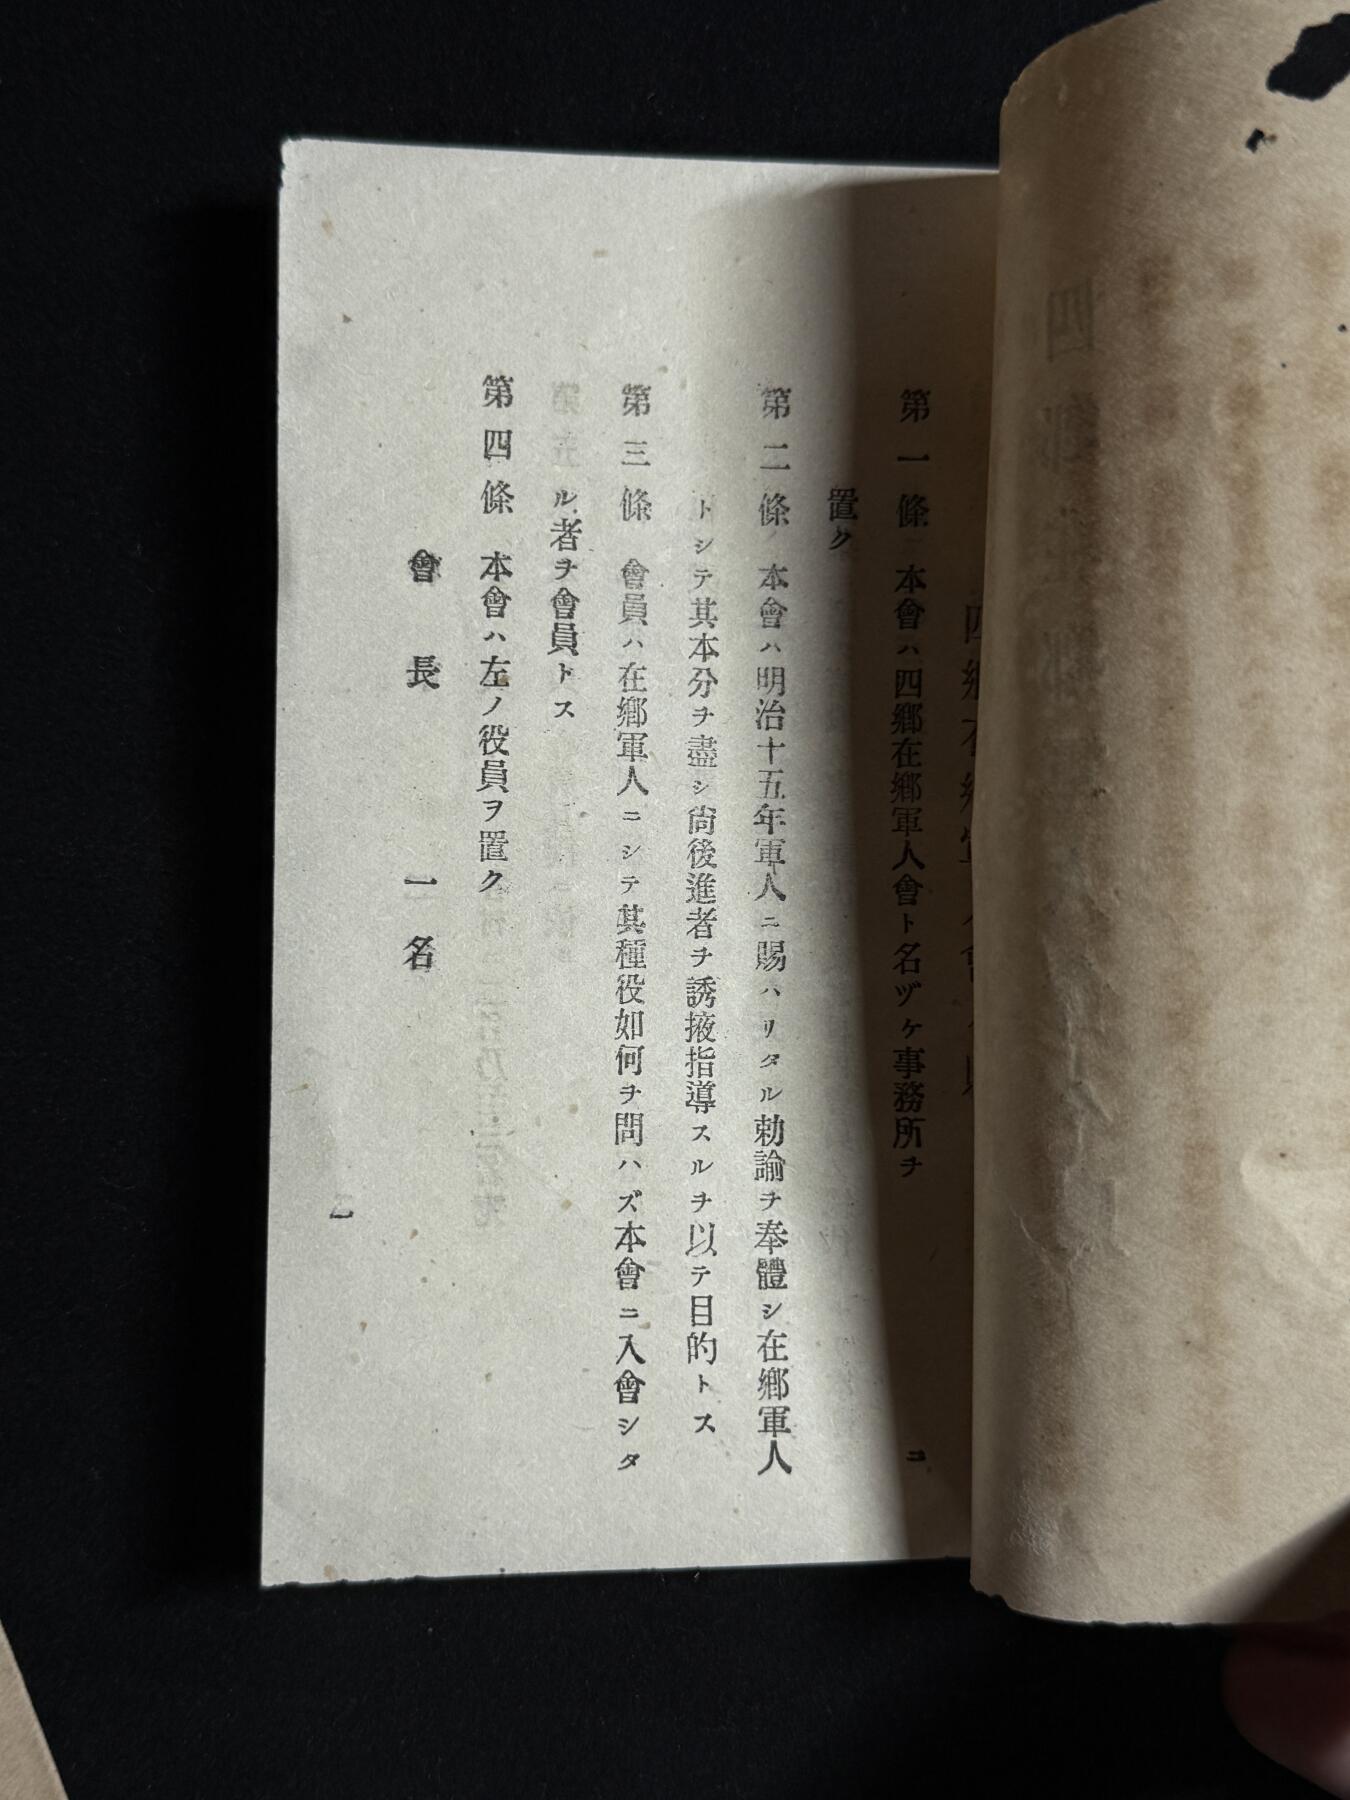 四鄕在鄕軍人會
第一條 本會ハ四鄕在鄕軍人會ト名ヅケ事務所ヲ ニ
置ク
第二條 本會ハ明治十五年軍人ニ賜ハリタル勅諭ヲ奉體シ在鄕軍人
トシテ其本分ヲ盡シ尙後進者ヲ誘掖指導スルヲ以テ目的トス
第三條 會員ハ在鄕軍人ニシテ其種役如何ヲ問ハズ本會ニ入會シタ
ル者ヲ會員トス
第四條 本會ハ左ノ役員ヲ置ク
會長 一名
一